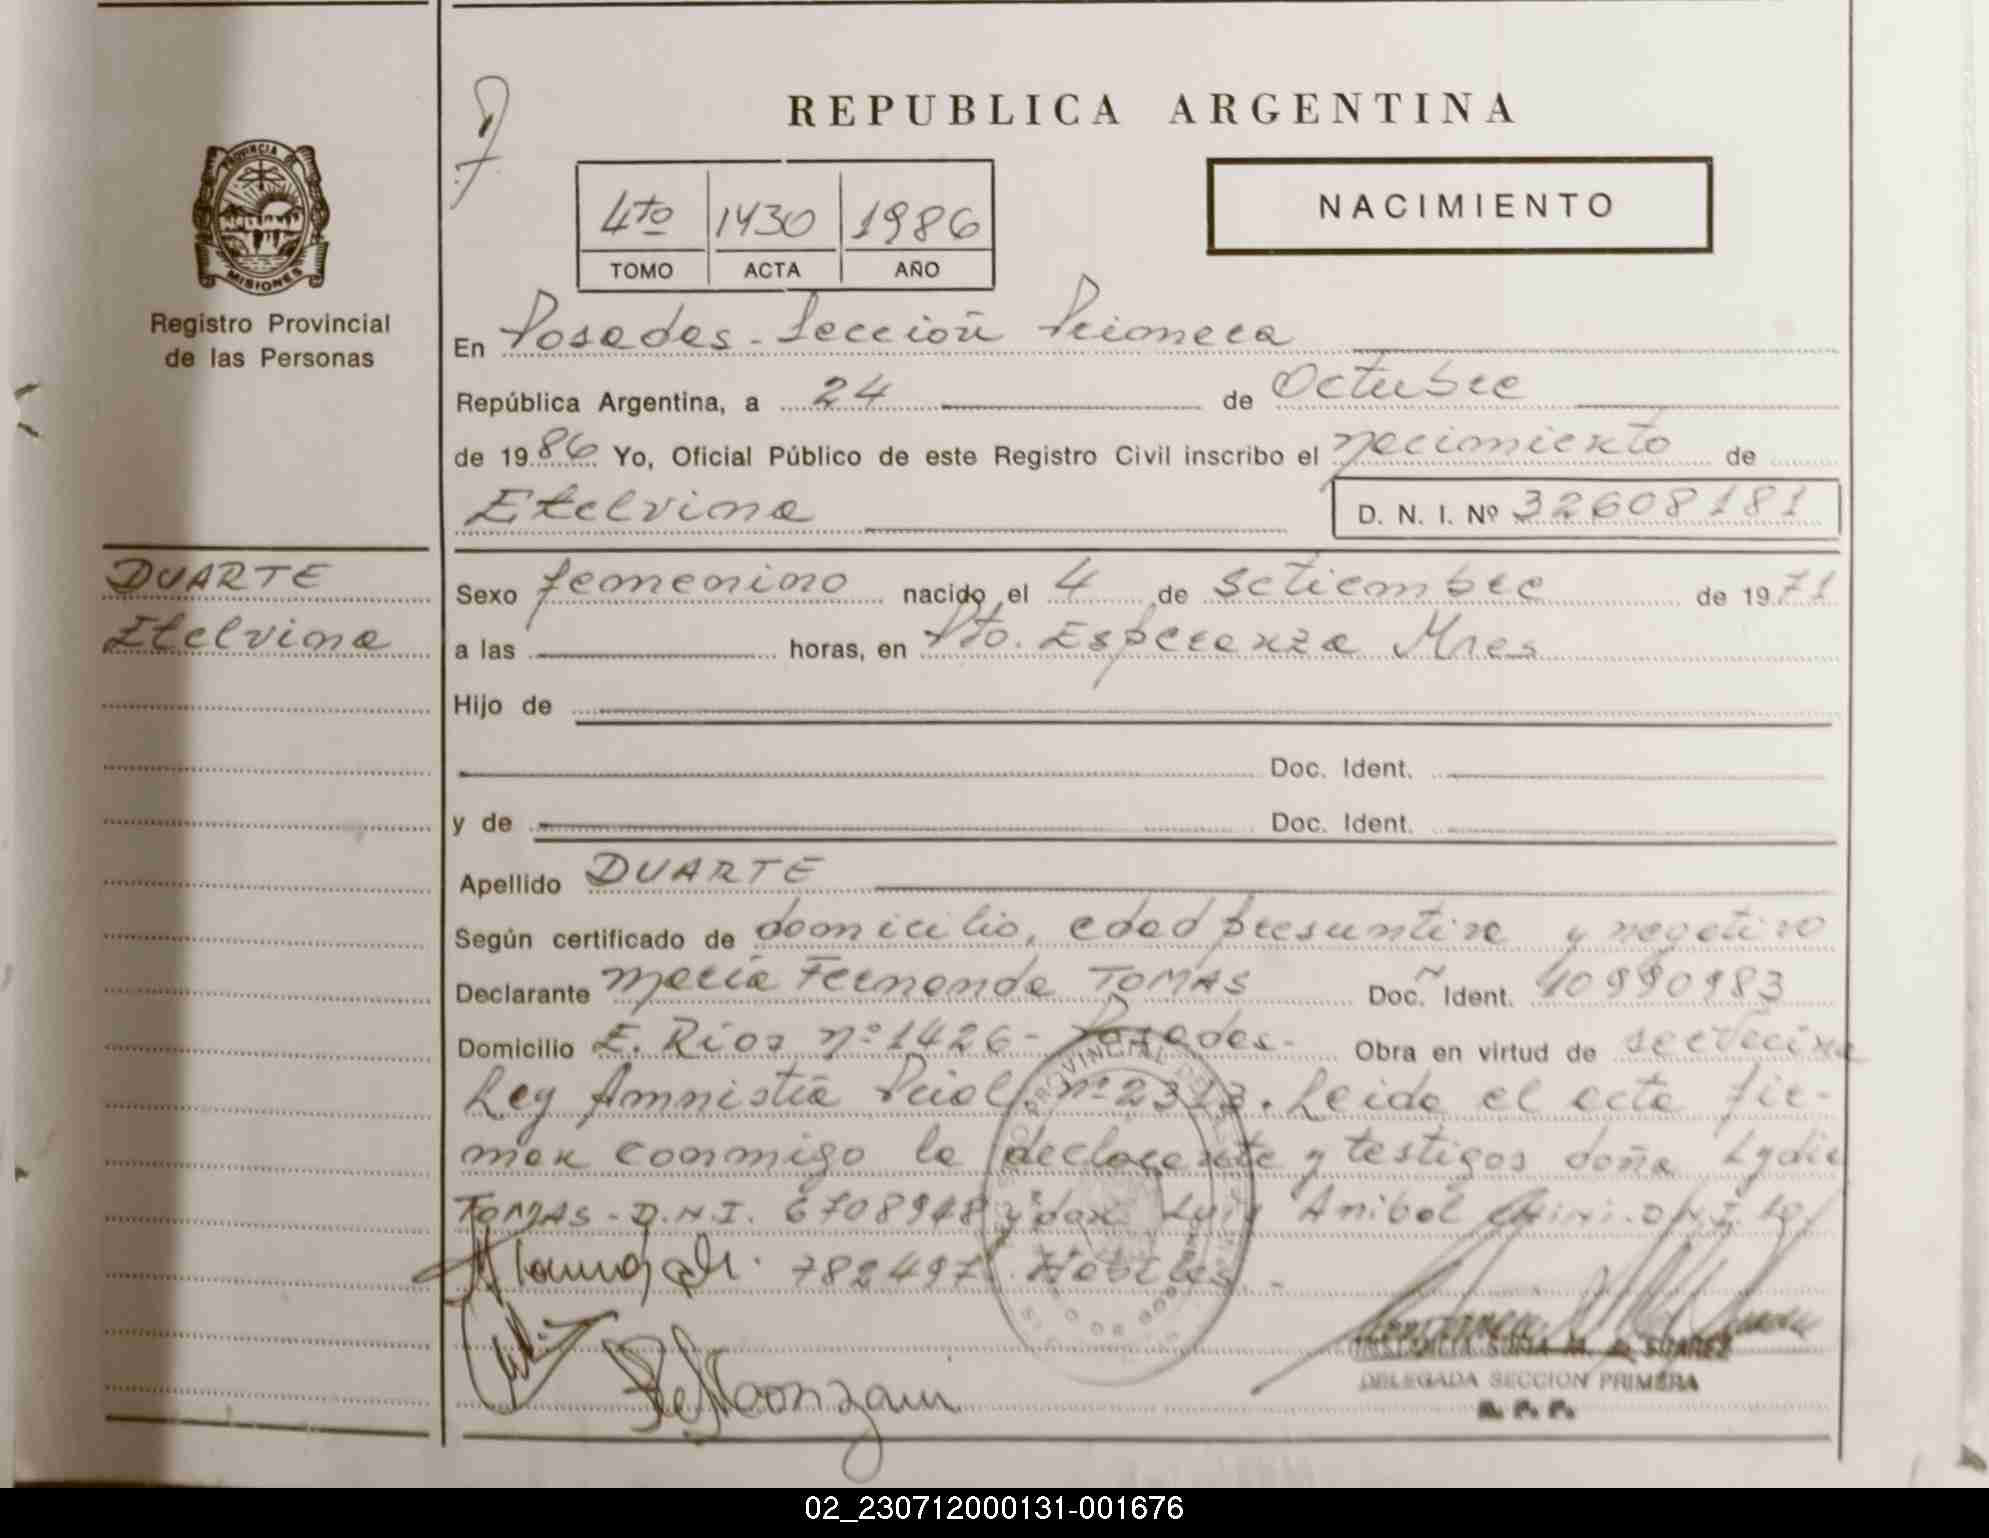 REPUBLICA ARGENTINA
PROVINCIA DE
MISIONES
Registro Provincial
de las Personas
4to 1430 1986
TOMO ACTA AÑO
NACIMIENTO
En Posadas - Sección Primera
República Argentina, a 24 de Octubre
de 1986 Yo, Oficial Público de este Registro Civil inscribo el nacimiento de
Etelvina D. N. I. Nº 32608181
DUARTE
Etelvina
Sexo femenino nacido el 4 de Setiembre de 1971
a las horas, en Pto. Esperanza Mnes
Hijo de
Doc. Ident.
y de Doc. Ident.
Apellido DUARTE
Según certificado de domicilio, edad presuntiva y negativo
Declarante María Fernanda TOMAS Doc. Ident. 10990983
Domicilio E. Ríos nº 1426 - Posadas - Obra en virtud de
Ley Amnistía Pcial. nº 2313. Leida el acta fir-
man conmigo la declarante y testigos doña Lydia
TOMAS - D.N.I. 6708948 y don Luis Anibal D.N.I. 10/
782497. Hábiles. -
CONSTANCIA SUSA M. de SUAREZ
DELEGADA SECCION PRIMERA
R. P. P.
02_230712000131-001676